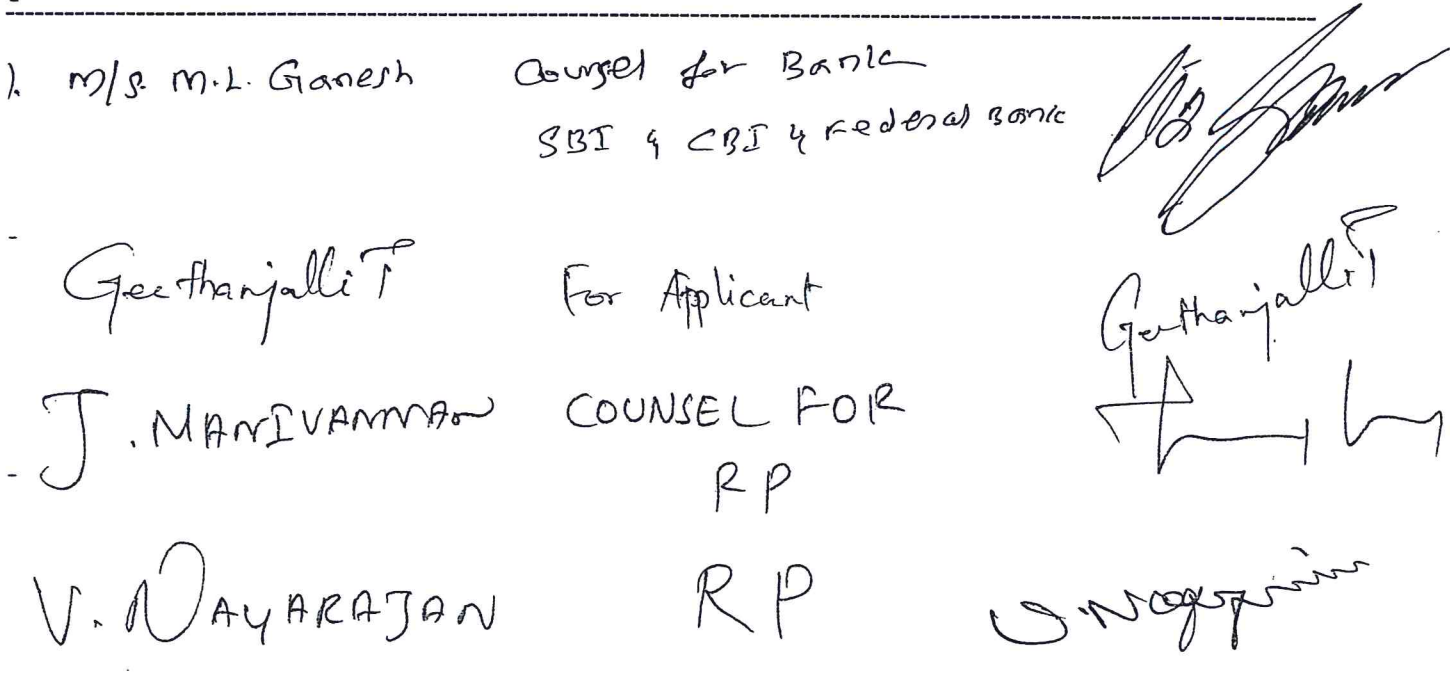 1. M/s. M.L. Ganesh Counsel for Bank
SBI & CBI & Federal Bank
Geethanjalli T For Applicant Geethanjalli T
J. MANIVANNAN COUNSEL FOR
RP
V. NAYARAJAN RP